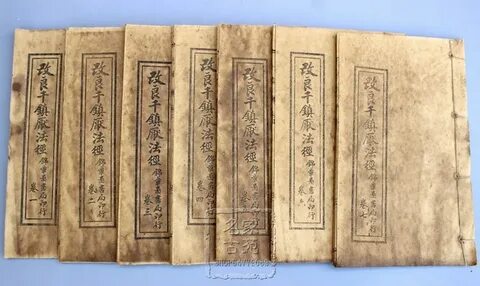 改良千鎮厭法經
錦章圖書局印行
卷一
改良千鎮厭法經
錦章圖書局印行
卷二
改良千鎮厭法經
錦章圖書局印行
卷三
改良千鎮厭法經
錦章圖書局印行
卷四
改良千鎮厭法經
錦章圖書局印行
改良千鎮厭法經
錦章圖書局印行
卷六
改良千鎮厭法經
錦章圖書局印行
卷七